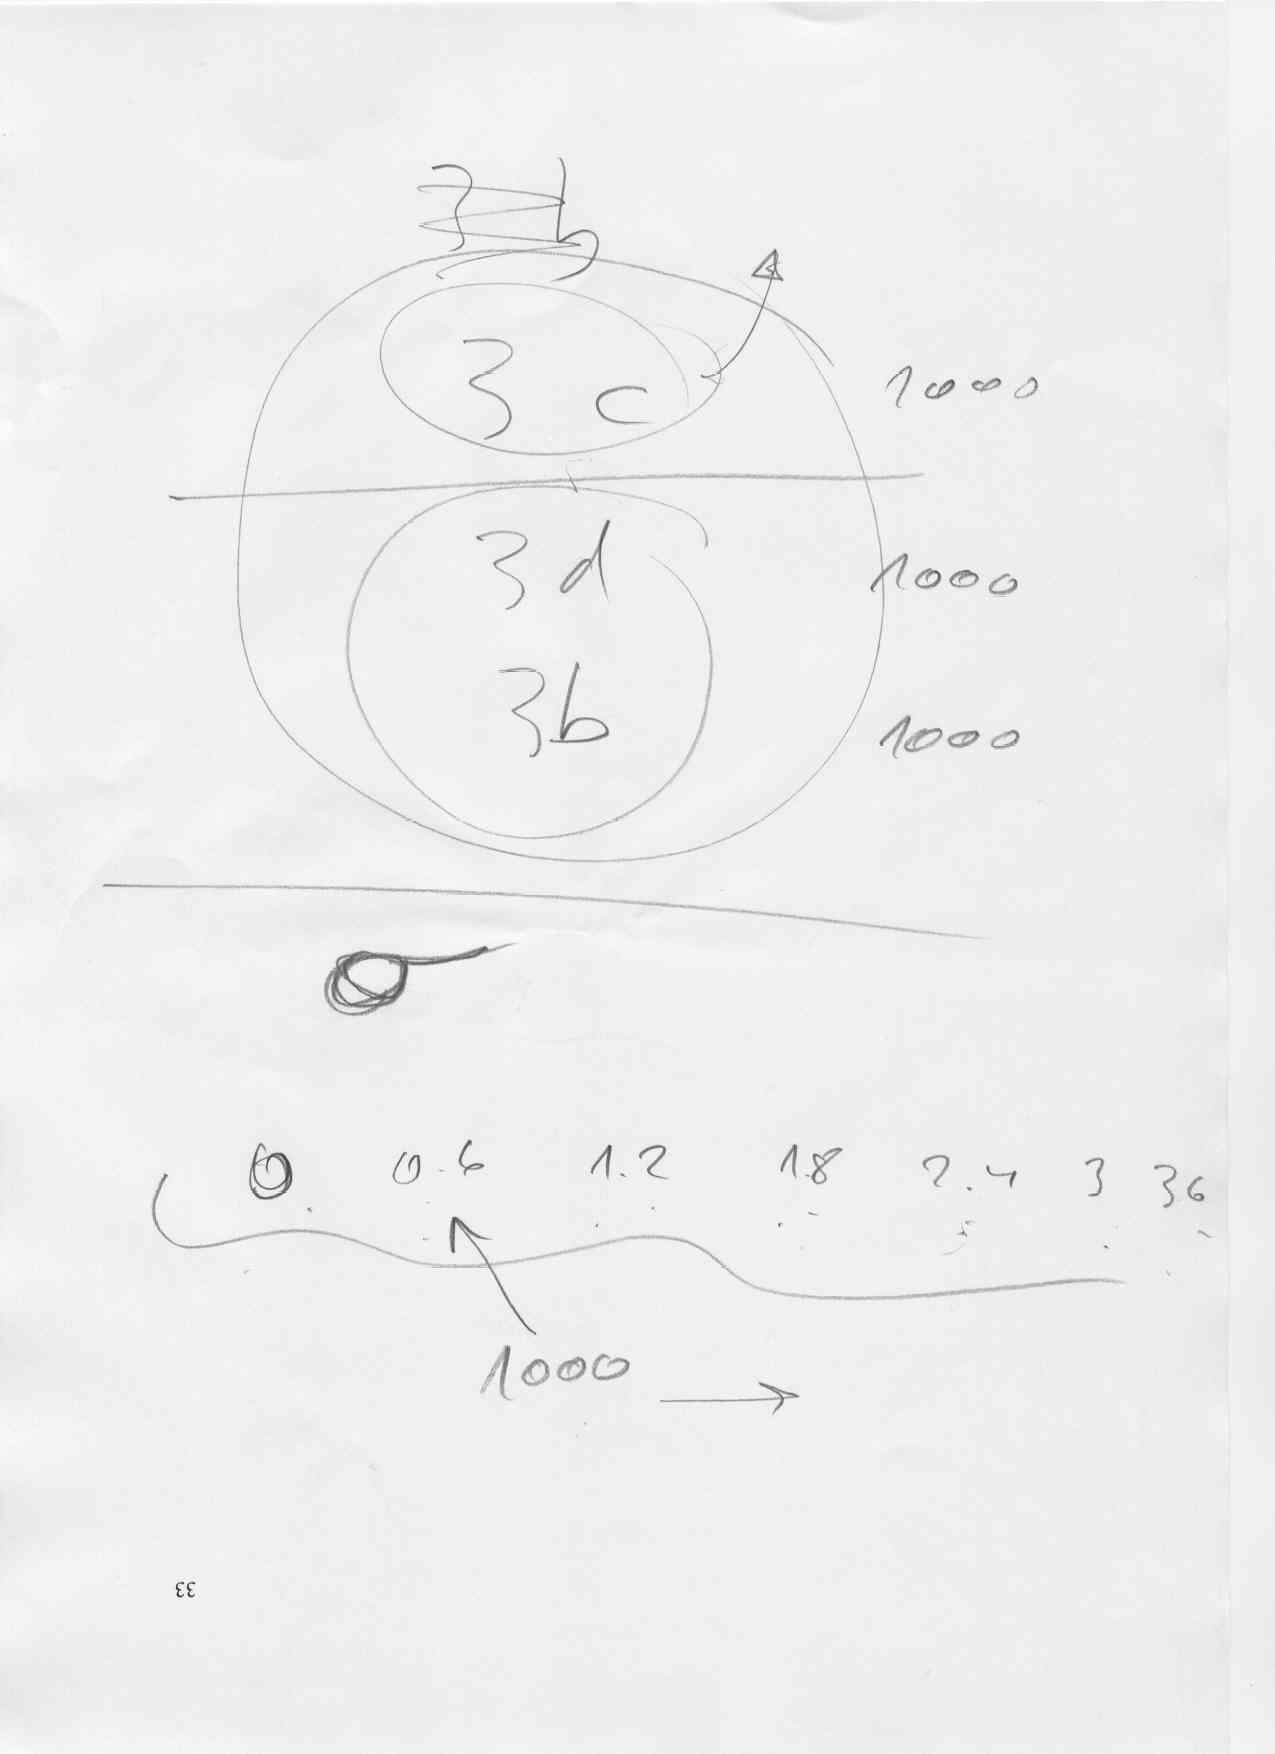 3b
3 c 1000
3d 1000
3b 1000
0 0.6 1.2 1.8 2.4 3 36
1000
33